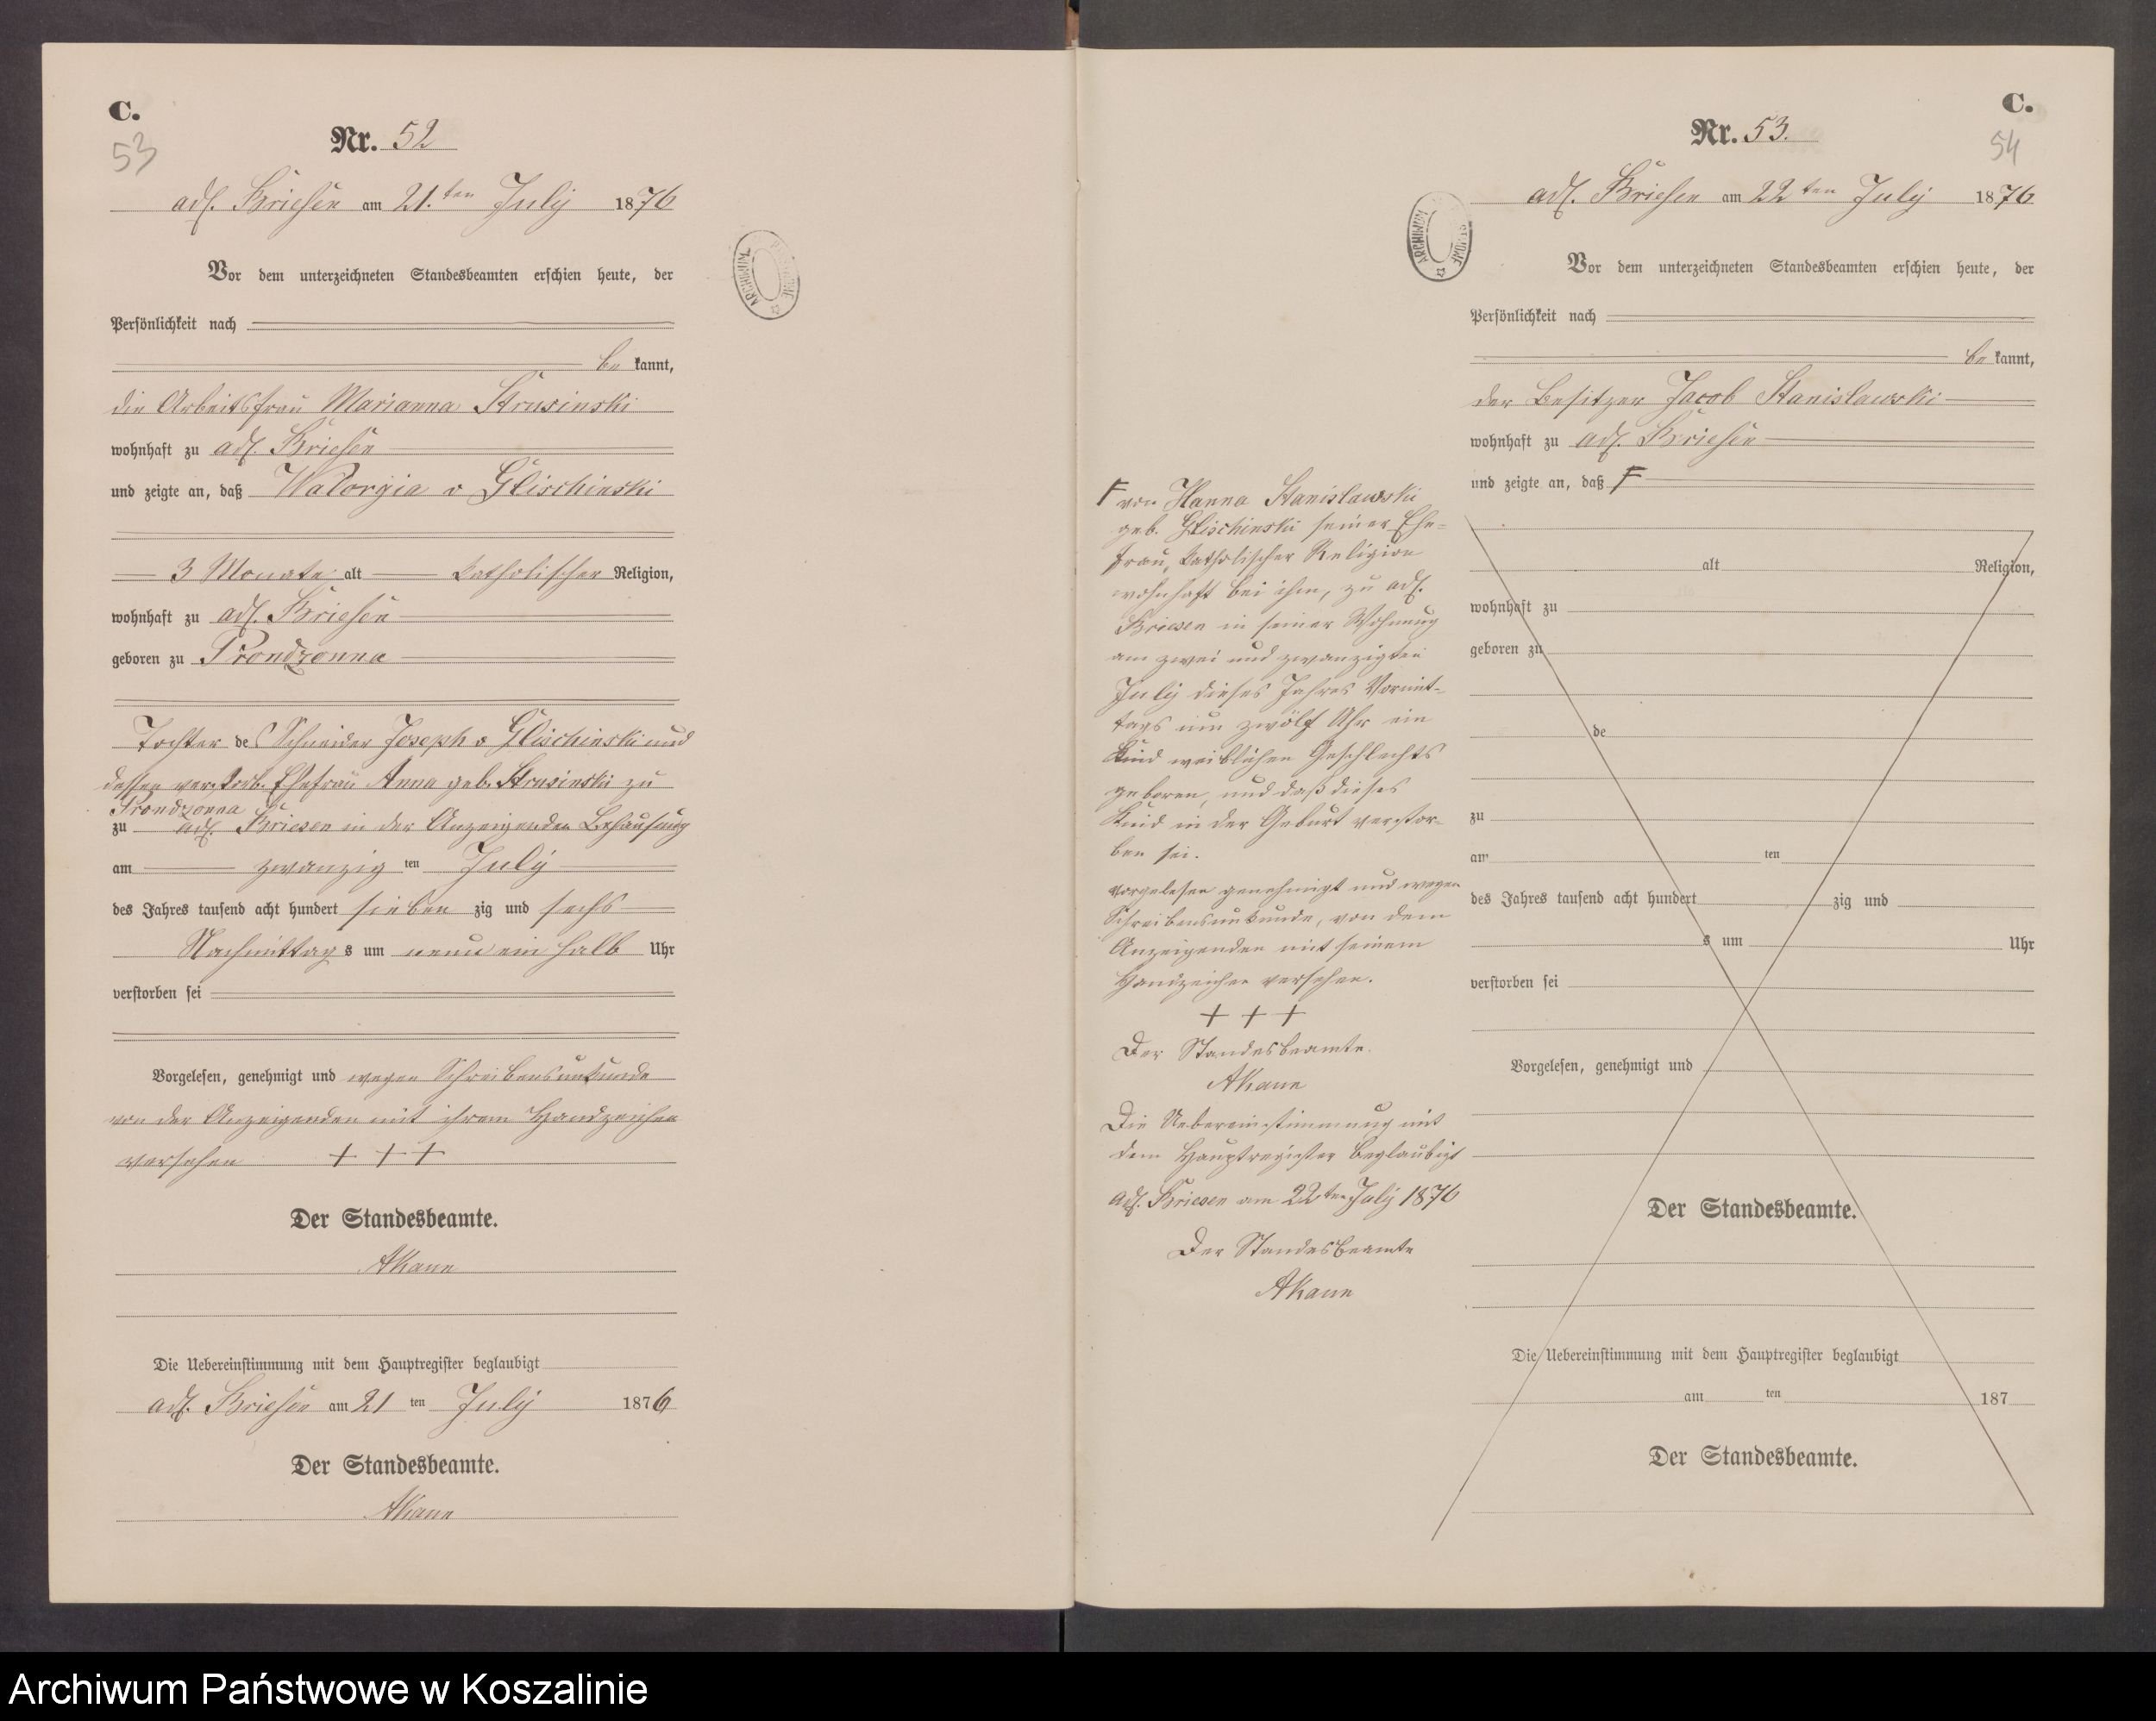 C.
53
Nr. 52
adl. Briesen am 21. ten July 1876
Vor dem unterzeichneten Standesbeamten erschien heute, der
Persönlichkeit nach
be kannt,
die Arbeitsfrau Marianna Strusinski
wohnhaft zu adl. Briesen
und zeigte an, daß Walorgia v Glischinski
3 Monate alt katholischer Religion,
wohnhaft zu adl. Briesen
geboren zu Prondzonna
Tochter des Schneider Joseph v Glischinski und
dessen verstorb. Ehefrau Anna geb. Strusinski zu
Prondzonna
zu adl. Briesen in der Anzeigenden Behausung
am zwanzig ten July
des Jahres tausend acht hundert sieben zig und sechs
Nachmittag s um neun ein halb Uhr
verstorben sei
Vorgelesen, genehmigt und wegen Schreibensunkunde
von der Anzeigenden mit ihrem Handzeichen
versehen + + +
Der Standesbeamte.
AKann
Die Uebereinstimmung mit dem Hauptregister beglaubigt
adl. Briesen am 21 ten July 1876
Der Standesbeamte.
AKann
ARCHIWUM
C.
54
Nr. 53.
adl. Briesen am 22 ten July 1876
Vor dem unterzeichneten Standesbeamten erschien heute, der
Persönlichkeit nach
be kannt,
der Besitzer Jacob Stanislawski
wohnhaft zu adl. Briesen
und zeigte an, daß F
F von Hanna Stanislawski
geb. Glischinski seiner Ehe=
frau, katholischer Religion
wohnhaft bei ihm, zu adl.
Briesen in seiner Wohnung
am zwei und zwanzigten
July dieses Jahres Vormit-
tags um zwölf Uhr ein
Kind weiblichen Geschlechts
geboren, und daß dieses
Kind in der Geburt verstor-
ben sei.
Vorgelesen genehmigt und wegen
Schreibensunkunde, von dem
Anzeigenden mit seinem
Handzeichen versehen.
+ + +
Der Standesbeamte.
AKann
Die Uebereinstimmung mit
dem Hauptregister beglaubigt
adl. Briesen am 22 ten July 1876
Der Standesbeamte
AKann
alt Religion,
wohnhaft zu
geboren zu
de
zu
am ten
des Jahres tausend acht hundert zig und
s um Uhr
verstorben sei
Vorgelesen, genehmigt und
Der Standesbeamte.
Die Uebereinstimmung mit dem Hauptregister beglaubigt
am ten 187
Der Standesbeamte.
ARCHIWUM
Archiwum Państwowe w Koszalinie